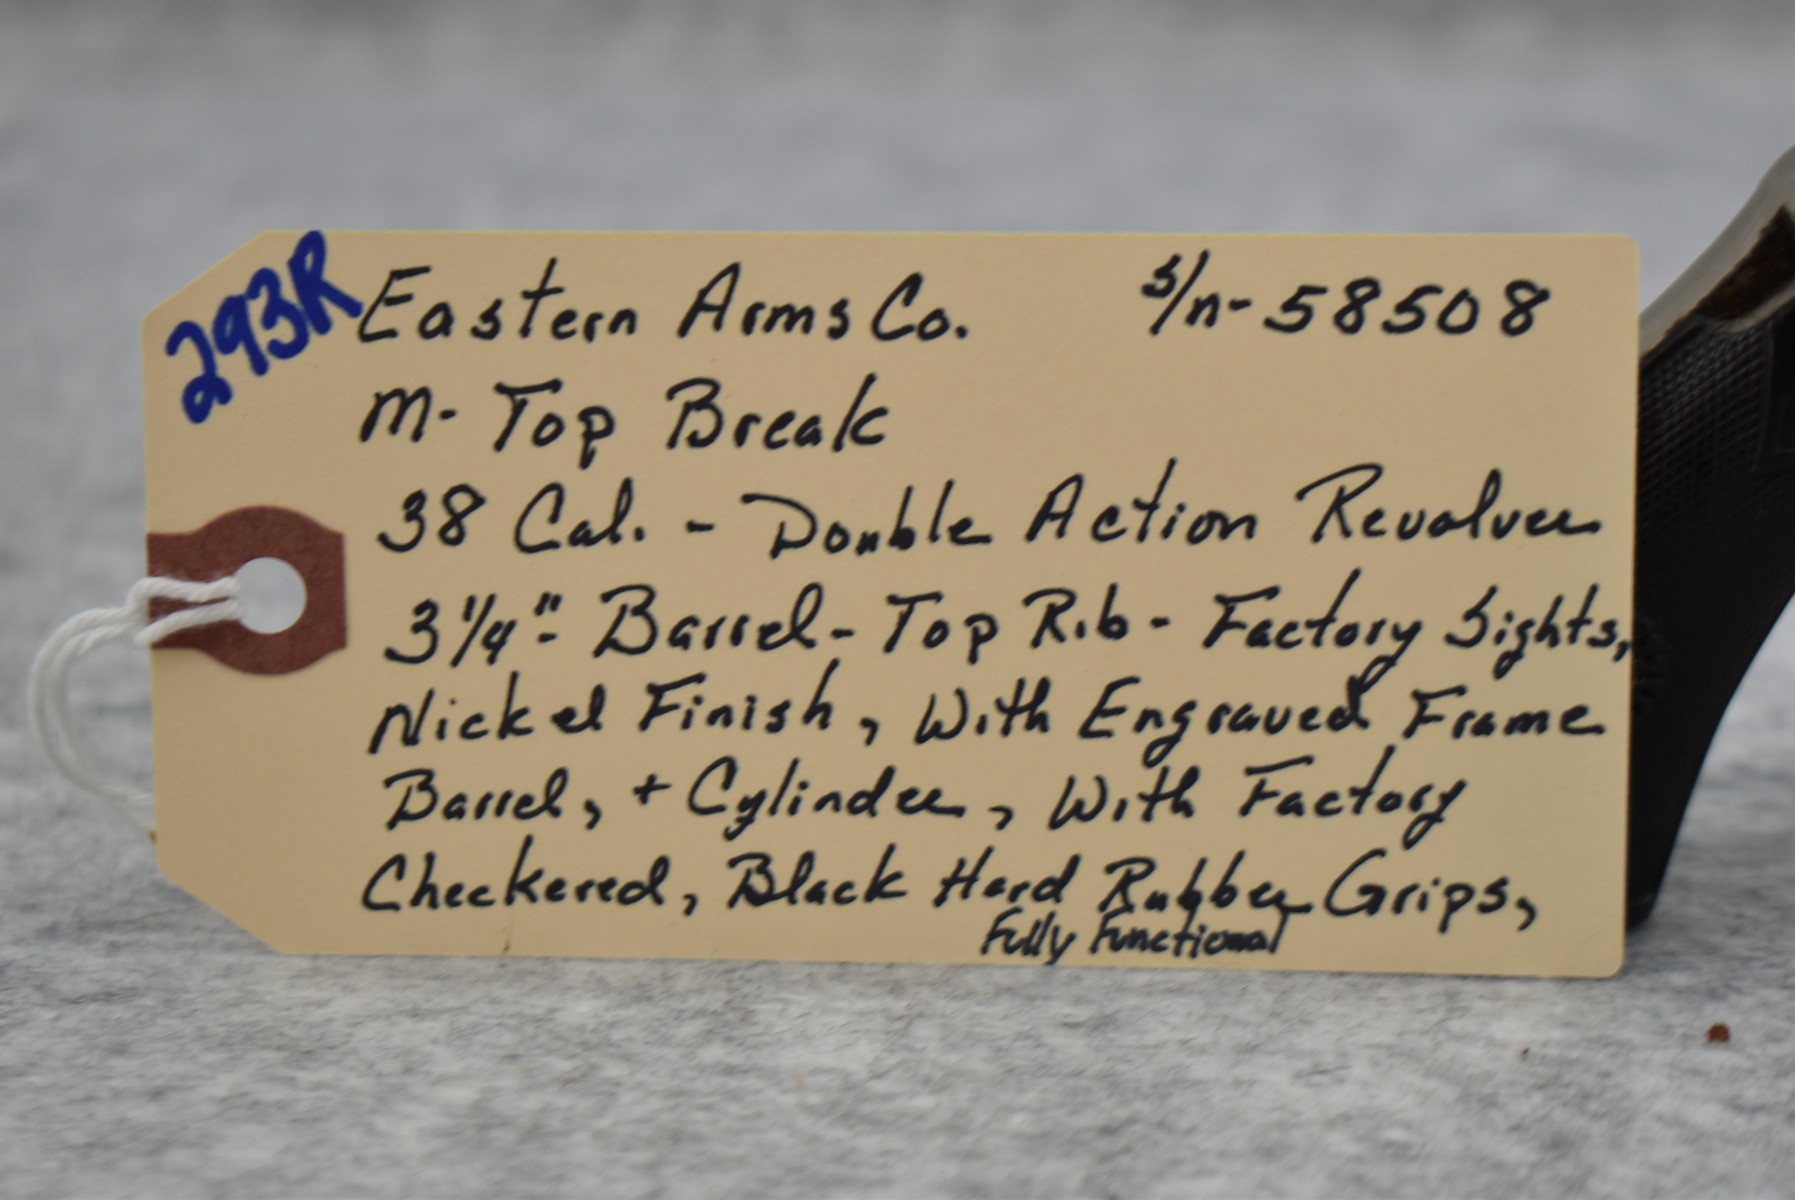 293R
Eastern Arms Co. s/n- 58508
M- Top Break
38 Cal. - Double Action Revolver
3 1/4"- Barrel - Top Rib - Factory Sights,
Nickel Finish, With Engraved Frame
Barrel, + Cylinder, With Factory
Checkered, Black Hard Rubber Grips,
Fully Functional